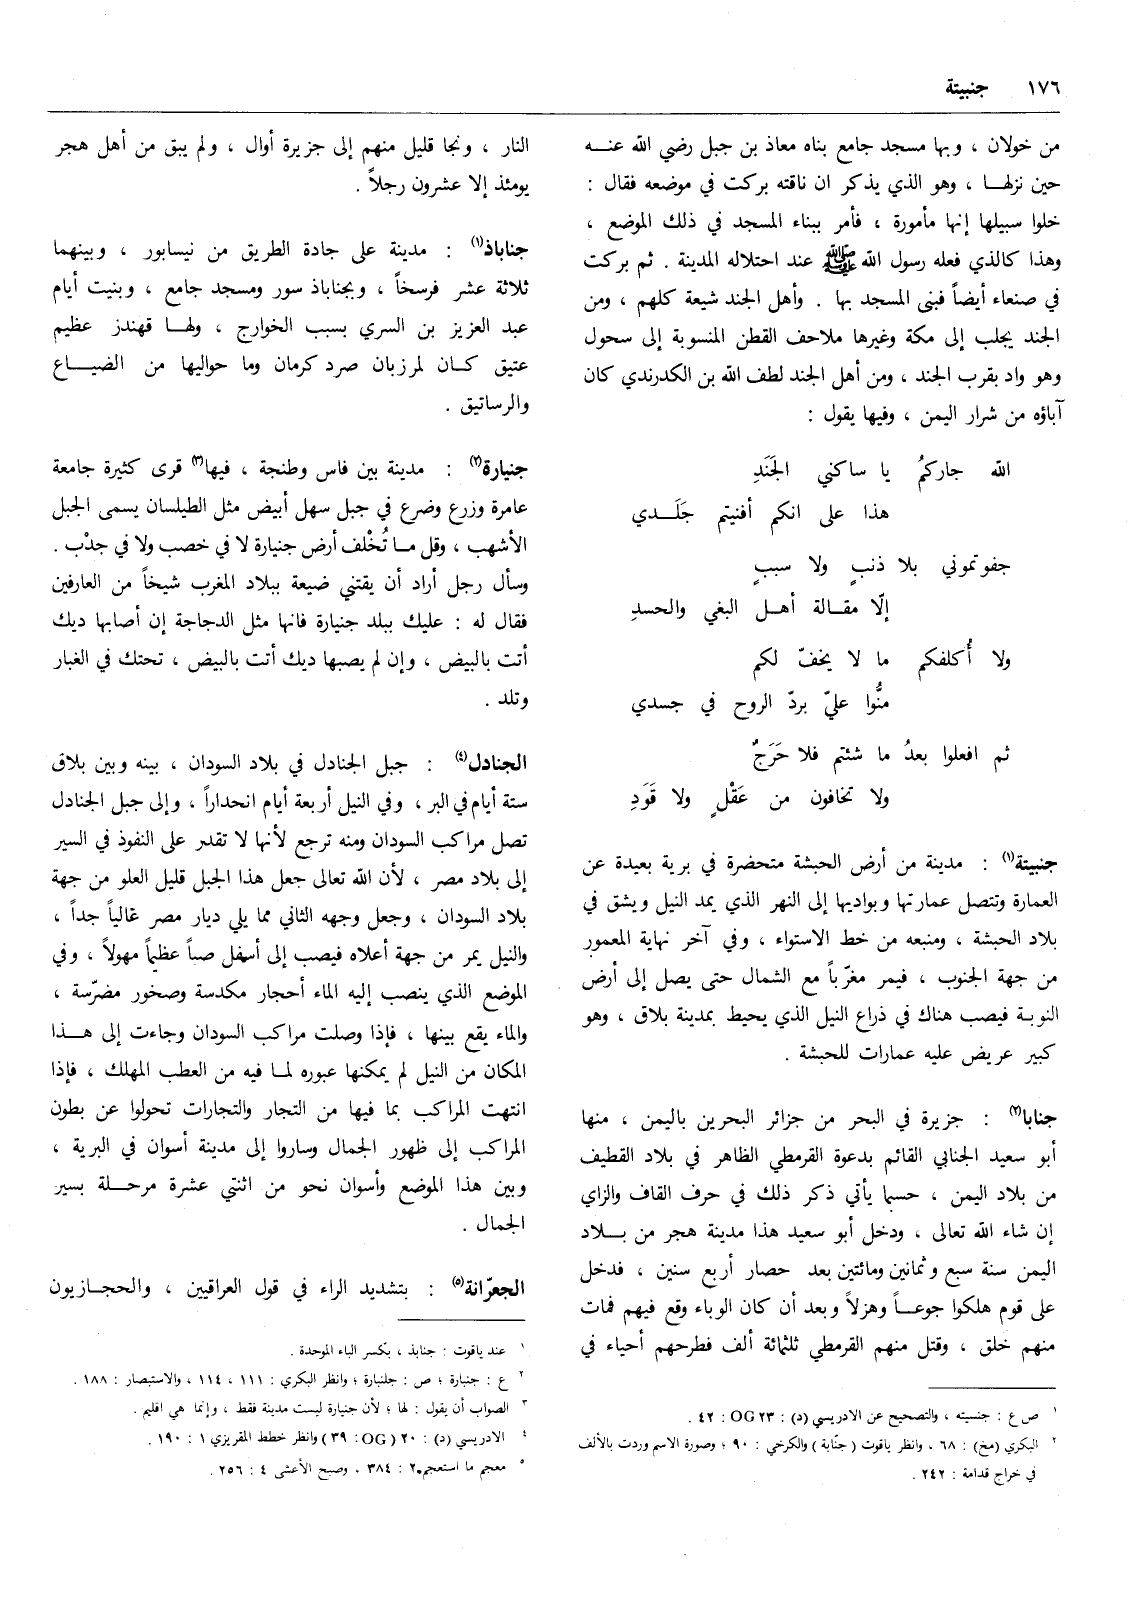 ١٧٦ جنبيتة
من خولان ، وبها مسجد جامع بناه معاذ بن جبل رضي الله عنـــه
حين نزلهـــا ، وهو الذي يذكر ان ناقته بركت في موضعه فقال :
خلوا سبيلها إنها مأمورة ، فأمر ببناء المسجد في ذلك الموضع ،
وهذا كالذي فعله رسول الله ﷺ عند احتلاله المدينة . ثم بركت
في صنعاء أيضاً فبنى المسجد بها . وأهل الجند شيعة كلهم ، ومن
الجند يجلب إلى مكة وغيرها ملاحف القطن المنسوبة إلى سحول
وهو واد بقرب الجند ، ومن أهل الجند لطف الله بن الكدرندي كان
آباؤه من شرار اليمن ، وفيها يقول :
الله جاركمُ يا ساكني الجَنَدِ
هذا على انكم أفنيتم جَلَـــدي
جفوتموني بلا ذنبٍ ولا سببٍ
إلّا مقـــالة أهـــل البغي والحسدِ
ولا أُكلفكم ما لا يخفّ لكم
منُّوا عليّ بردّ الروح في جسدي
ثم افعلوا بعدُ ما شئتم فلا حَرَجٌ
ولا تخافون من عَقْلٍ ولا قَوَدِ
جنبيتة(١) : مدينة من أرض الحبشة متحضرة في برية بعيدة عن
العمارة وتتصل عمارتها وبواديها إلى النهر الذي يمد النيل ويشق في
بلاد الحبشة ، ومنبعه من خط الاستواء ، وفي آخر نهاية المعمور
من جهة الجنوب ، فيمر مغرّباً مع الشمال حتى يصل إلى أرض
النوبة فيصب هناك في ذراع النيل الذي يحيط بمدينة بلاق ، وهو
كبير عريض عليه عمارات للحبشة .
جنابا(٢) : جزيرة في البحر من جزائر البحرين باليمن ، منها
أبو سعيد الجنابي القائم بدعوة القرمطي الظاهر في بلاد القطيف
من بلاد اليمن ، حسبما يأتي ذكر ذلك في حرف القاف والزاي
إن شاء الله تعالى ، ودخل أبو سعيد هذا مدينة هجر من بـــلاد
اليمن سنة سبع وثمانين ومائتين بعد حصار أربع سنين ، فدخل
على قوم هلكوا جوعـــاً وهزلاً وبعد أن كان الوباء وقع فيهم فمات
منهم خلق ، وقتل منهم القرمطي ثلثمائة ألف فطرحهم أحياء في
١ ص ع : جنسيته ، والتصحيح عن الادريسي (د) : ٢٣ OG : ٤٢ .
٢ البكري (مخ) : ٦٨ ، وانظر ياقوت ( جنّابة ) والكرخي : ٩٠ ؛ وصورة الاسم وردت بالألف
في خراج قدامة : ٢٤٢ .
النار ، ونجا قليل منهم إلى جزيرة أوال ، ولم يبق من أهل هجر
يومئذ إلا عشرون رجلاً .
جناباذ(١) : مدينة على جادة الطريق من نيسابور ، وبينهما
ثلاثة عشر فرسخاً ، وبجناباذ سور ومسجد جامع ، وبنيت أيام
عبد العزيز بن السري بسبب الخوارج ، ولهـــا قهندز عظيم
عتيق كـــان لمرزبان صرد كرمان وما حواليها من الضيـــاع
والرساتيق .
جنيارة(٢) : مدينة بين فاس وطنجة ، فيها(٣) قرى كثيرة جامعة
عامرة وزرع وضرع في جبل سهل أبيض مثل الطيلسان يسمى الجبل
الأشهب ، وقل مـــا تُخْلف أرض جنيارة لا في خصب ولا في جدْب .
وسأل رجل أراد أن يقتني ضيعة ببلاد المغرب شيخاً من العارفين
فقال له : عليك ببلد جنيارة فانها مثل الدجاجة إن أصابها ديك
أتت بالبيض ، وإن لم يصبها ديك أتت بالبيض ، تحتك في الغبار
وتلد .
الجنادل(٤) : جبل الجنادل في بلاد السودان ، بينه وبين بلاق
ستة أيام في البر ، وفي النيل أربعة أيام انحداراً ، وإلى جبل الجنادل
تصل مراكب السودان ومنه ترجع لأنها لا تقدر على النفوذ في السير
إلى بلاد مصر ، لأن الله تعالى جعل هذا الجبل قليل العلو من جهة
بلاد السودان ، وجعل وجهه الثاني مما يلي ديار مصر عالياً جداً ،
والنيل يمر من جهة أعلاه فيصب إلى أسفل صباً عظيماً مهولاً ، وفي
الموضع الذي ينصب إليه الماء أحجار مكدسة وصخور مضرّسة ،
والماء يقع بينها ، فإذا وصلت مراكب السودان وجاءت إلى هـــذا
المكان من النيل لم يمكنها عبوره لمـــا فيه من العطب المهلك ، فإذا
انتهت المراكب بما فيها من التجار والتجارات تحولوا عن بطون
المراكب إلى ظهور الجمال وساروا إلى مدينة أسوان في البرية ،
وبين هذا الموضع وأسوان نحو من اثنتي عشرة مرحلـــة بسير
الجمال .
الجعرّانة(٥) : بتشديد الراء في قول العراقيين ، والحجـــازيون
١ عند ياقوت : جنابذ ، بكسر الباء الموحدة .
٢ ع : جنبارة ؛ ص : جلنبارة ؛ وانظر البكري : ١١١ ، ١١٤ ، والاستبصار : ١٨٨ .
٣ الصواب أن يقول : لها ؛ لأن جنيارة ليست مدينة فقط ، وإنما هي اقليم .
٤ الادريسي (د) : ٢٠ ( OG : ٣٩ ) وانظر خطط المقريزي ١ : ١٩٠ .
٥ معجم ما استعجم ٢ : ٣٨٤ ، وصبح الأعشى ٤ : ٢٥٦ .